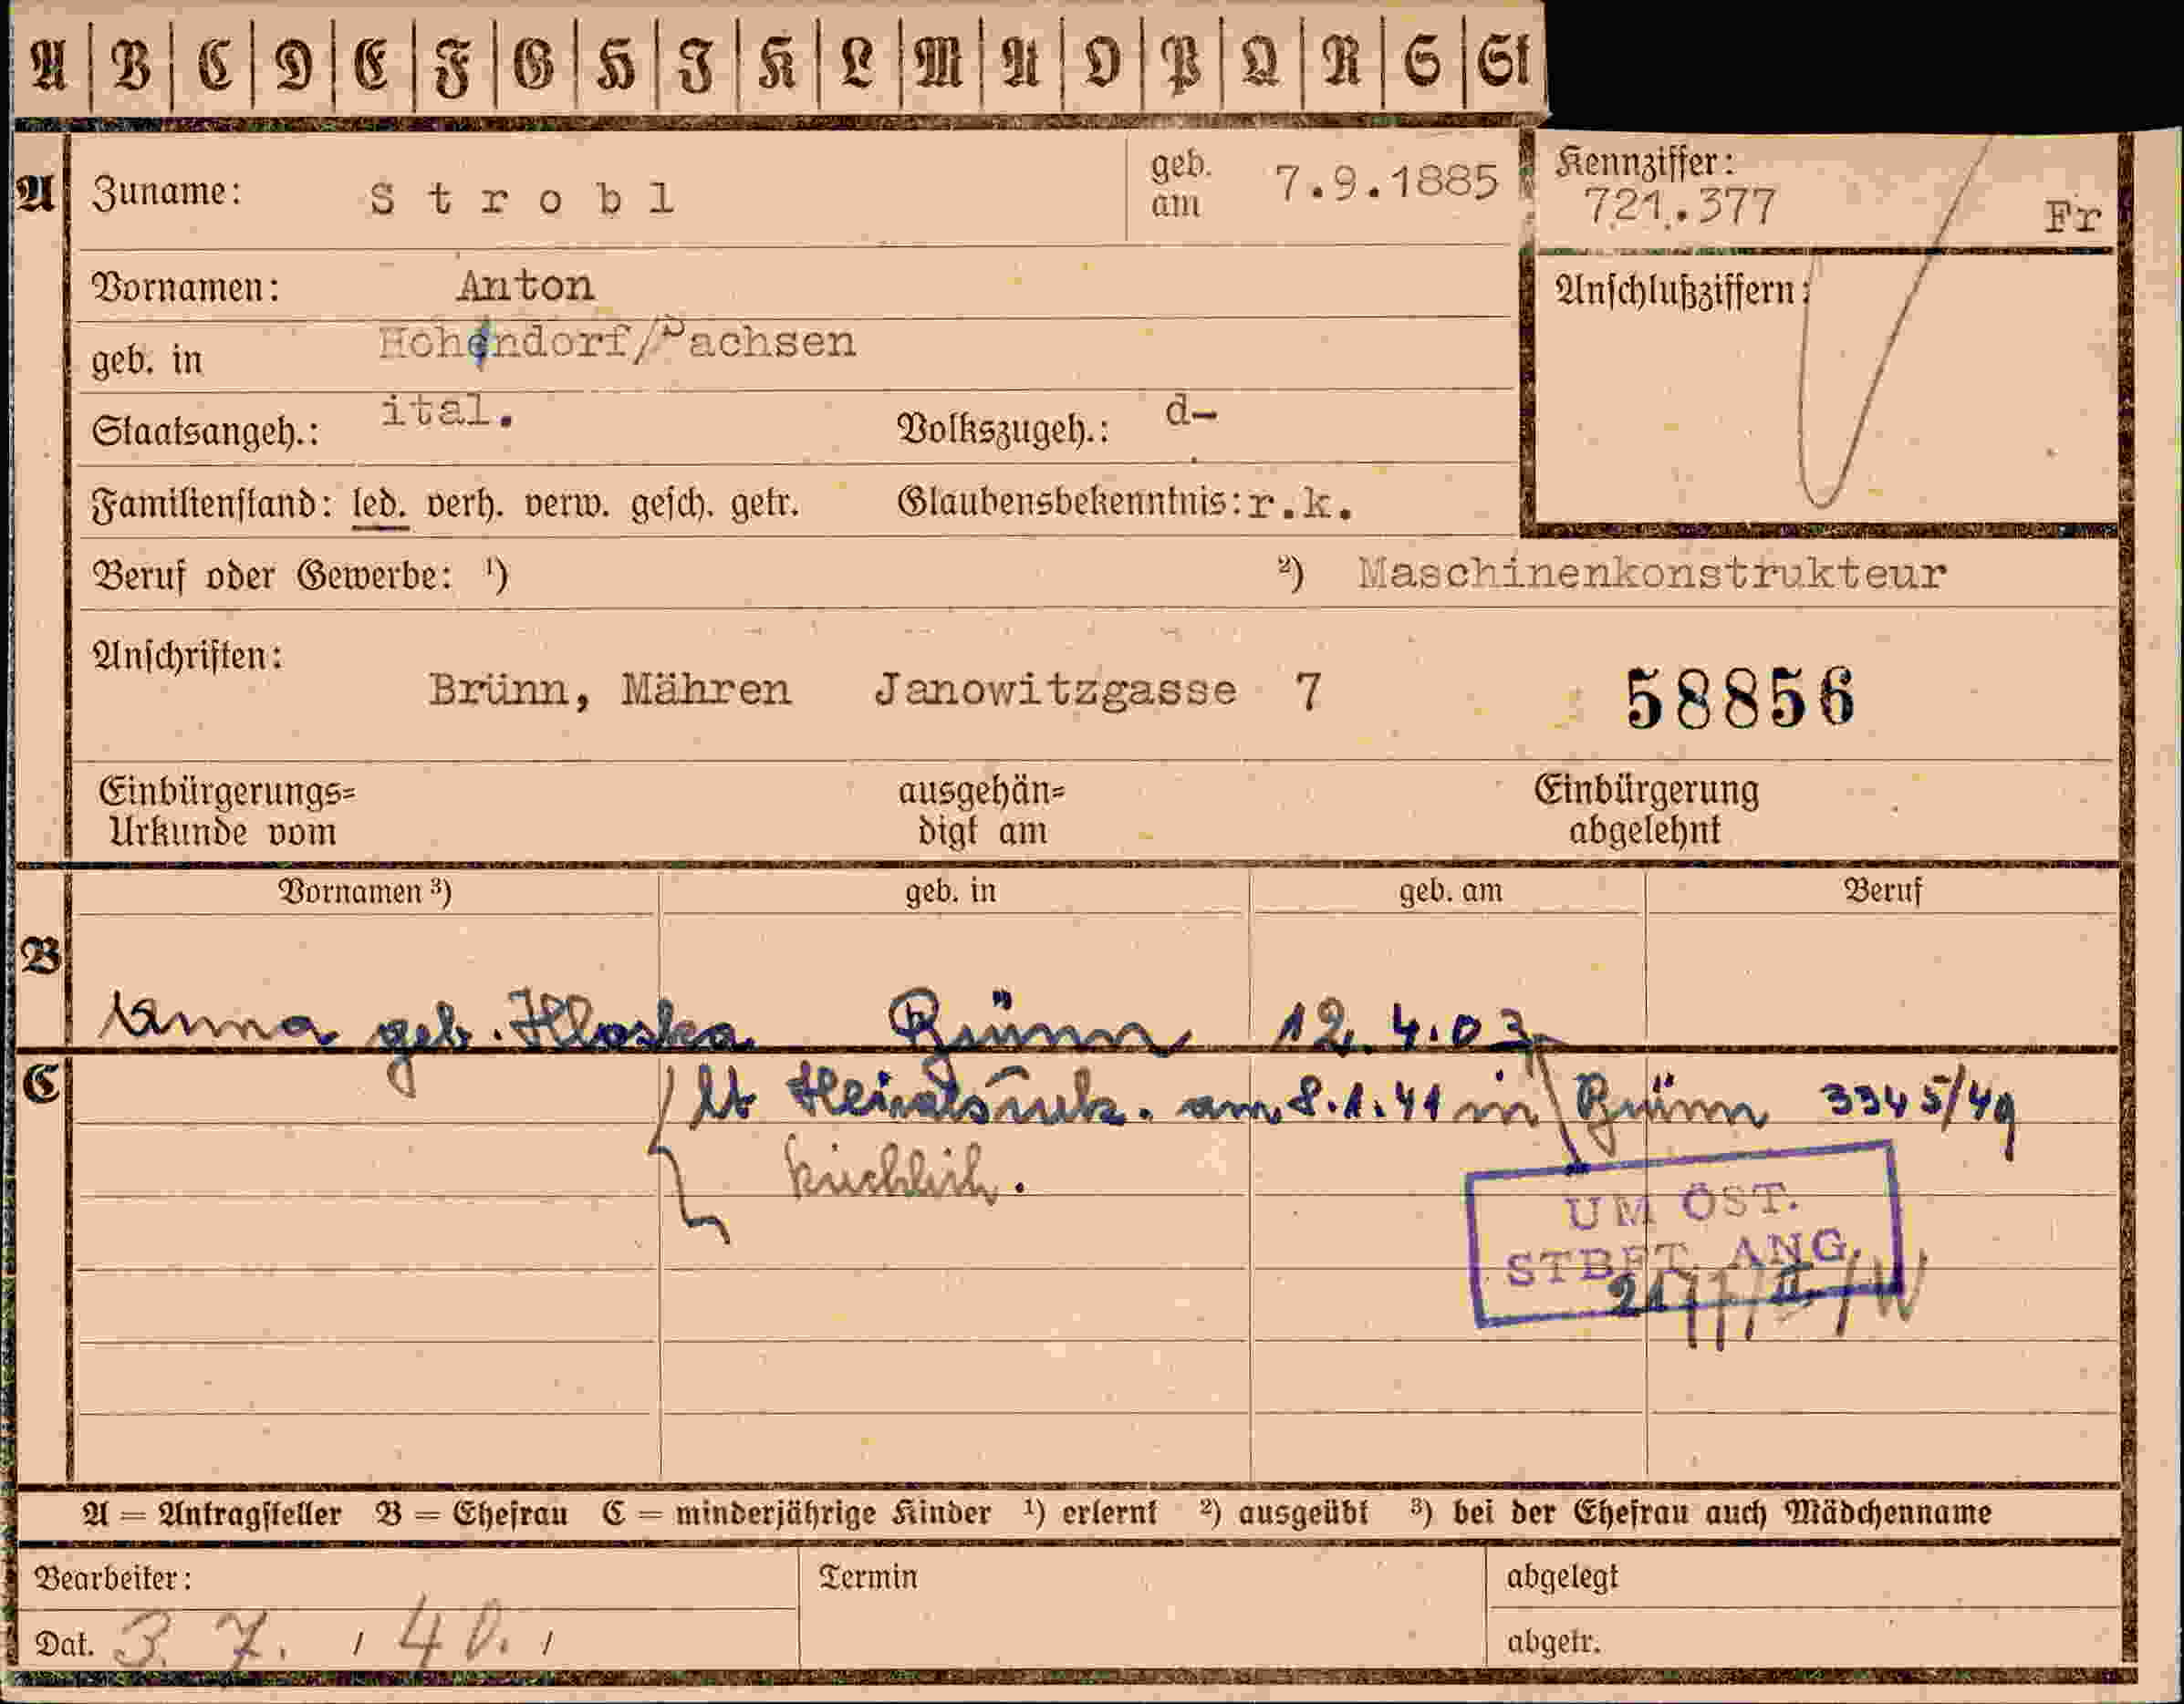 A B C D E F G H I K L M N O P Q R S St
A Zuname: Strobl geb. am 7.9.1885 Kennziffer: 721.377 Fr
Vornamen: Anton Anschlußziffern:
geb. in Hohendorf/Sachsen
Staatsangeh.: ital. Volkszugeh.: d-
Familienstand: led. verh. verw. gesch. getr. Glaubensbekenntnis: r.k.
Beruf oder Gewerbe: ¹) ²) Maschinenkonstrukteur
Anschriften: Brünn, Mähren Janowitzgasse 7 58856
Einbürgerungs= ausgehän= Einbürgerung
Urkunde vom digt am abgelehnt
Vornamen ³) geb. in geb. am Beruf
B Anna geb. Hloska Brünn 12.4.03
C lt Heiratsurk. am 8.1.41 in Brünn 3345/49
kirchlich.
UM ÖST.
STBFT. ANG.
A = Antragsteller B = Ehefrau C = minderjährige Kinder ¹) erlernt ²) ausgeübt ³) bei der Ehefrau auch Mädchenname
Bearbeiter: Termin abgelegt
Dat. 3. 7. / 40. / abgetr.